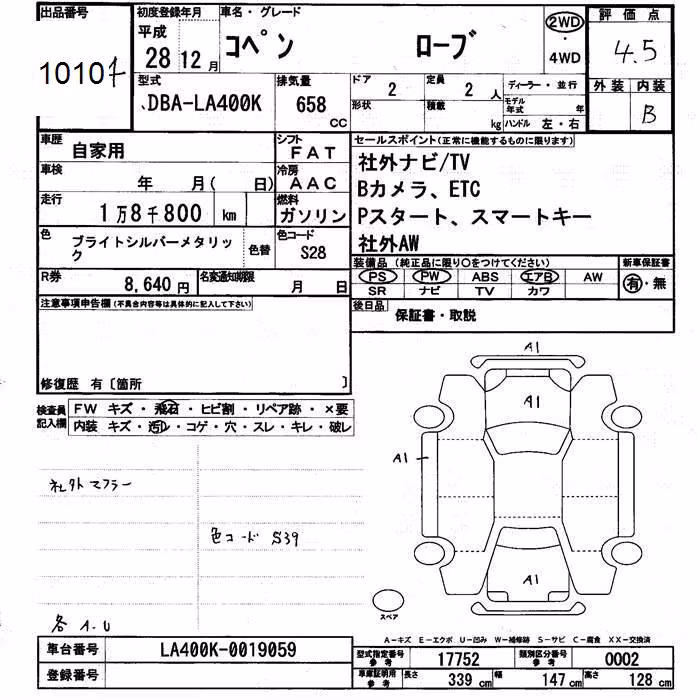 出品番号
初度登録年月
車名・グレード
評価点
平成
28 12月
コペン ローブ
2WD
・
4WD
4.5
10101
型式
排気量
ドア 定員
ディーラー・並行
外装 内装
DBA-LA400K
658
CC
2 2人
形状 積載 kg
モデル年式 年
ハンドル 左・右
B
車歴
自家用
シフト
FAT
セールスポイント(正常に機能するものに限ります)
社外ナビ/TV
Bカメラ、ETC
Pスタート、スマートキー
社外AW
車検
年 月( 日)
冷房
AAC
走行
1万8千800 km
燃料
ガソリン
色
ブライトシルバーメタリック
色替
色コード
S28
装備品(純正品に限り○をつけてください)
新車保証書
PS PW ABS エアB AW
SR ナビ TV カワ
有・無
R券
8,640円
名変通知期限
月 日
後日品
保証書・取説
注意事項申告欄(不具合内容等は具体的に記入して下さい)
修復歴 有〔箇所 〕
検査員記入欄
FW キズ・飛石・ヒビ割・リペア跡・×要
内装 キズ・汚レ・コゲ・穴・スレ・キレ・破レ
A1
A1
A1
A1
社外マフラー
色コード S39
各 A.U
スペア
A-キズ E-エクボ U-凹み W-補修跡 S-サビ C-腐食 XX-交換済
車台番号
LA400K-0019059
登録番号
型式指定番号
参考
17752
類別区分番号
参考
0002
車庫証明用
参考
長さ 339 cm 幅 147 cm 高さ 128 cm